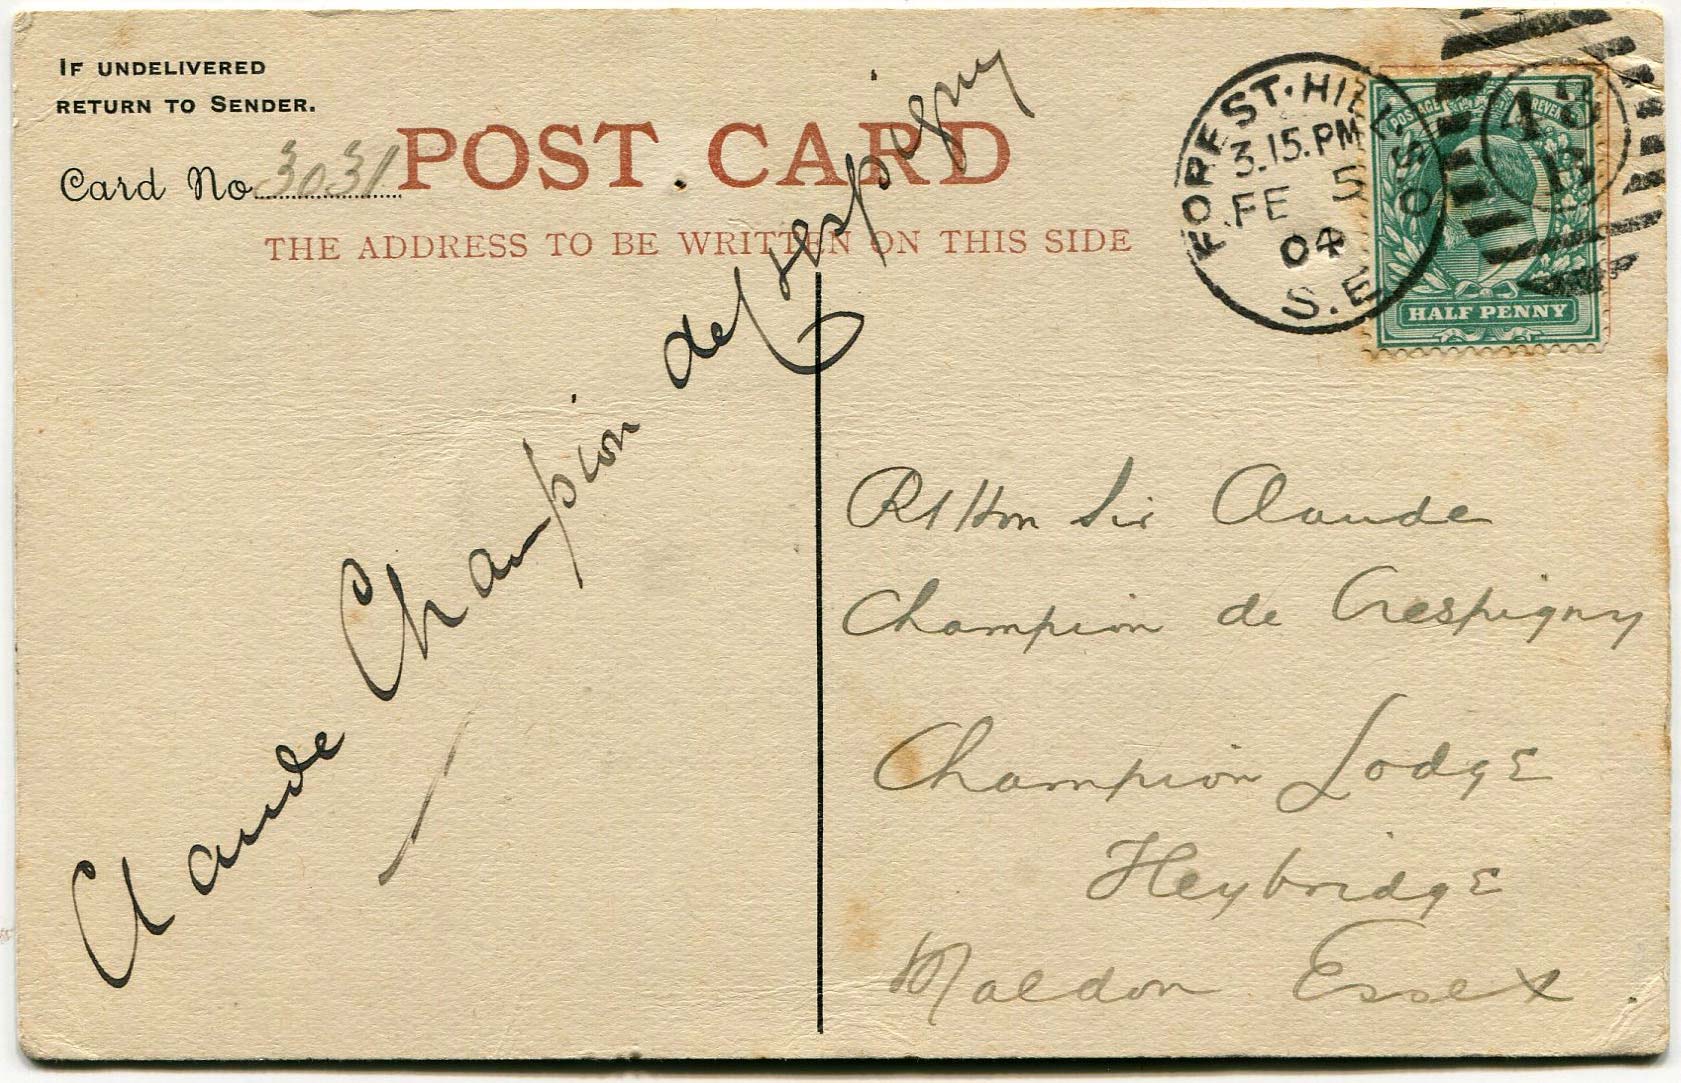 IF UNDELIVERED
RETURN TO SENDER.
Card No 3031
POST CARD
THE ADDRESS TO BE WRITTEN ON THIS SIDE
FOREST-HILL
3.15.PM
FE 5
04
S.E
HALF PENNY
Claude Champion de Crespigny
Rt Hon Sir Claude
Champion de Crespigny
Champion Lodge
Heybridge
Maldon Essex.